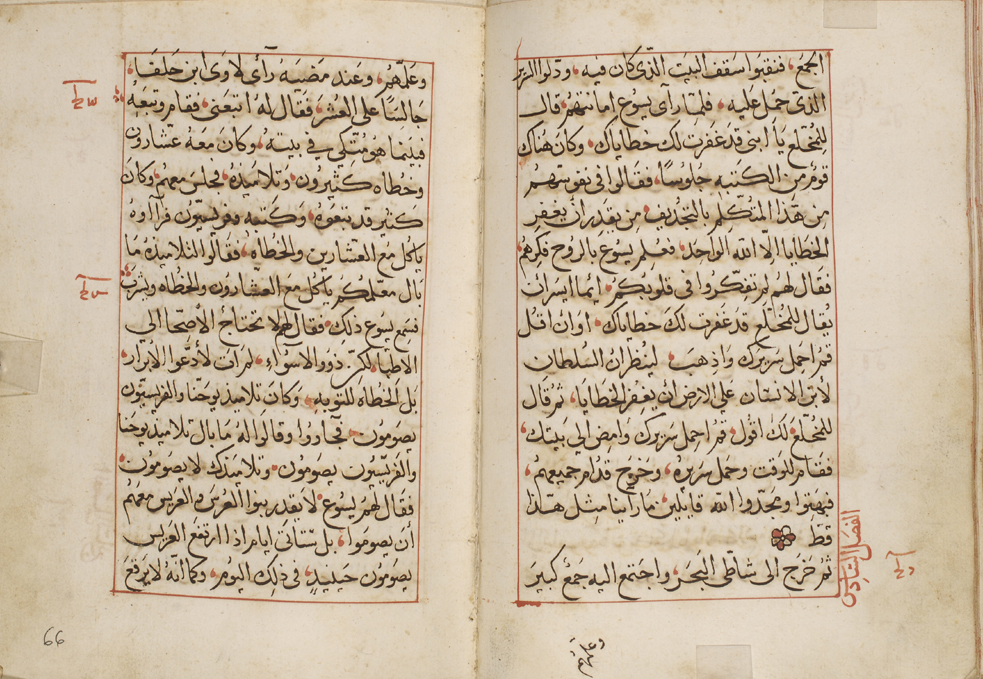 الجمع، فنقبوا سقف البيت الذي كان فيه، ودلوا السرير
الذي حمل عليه، فلما رأى يسوع امانتهم، قال
للمخلع يا ابني قد غفرت لك خطاياك، وكان هناك
قوم من الكتبه جلوسا، فقالوا في نفوسهم
من هذا المتكلم بالتجديف، من يقدر ان يغفر
الخطايا الا الله الواحد، فعلم يسوع بالروح فكرهم،
فقال لهم لم تفكروا في قلوبكم، ايما ايسر ان
يقال للمخلع قد غفرت لك خطاياك، او ان اقل
قم احمل سريرك واذهب، لينظر ان السلطان
لابن الانسان على الارض ان يغفر الخطايا، ثم قال
للمخلع لك اقول، قم احمل سريرك وامض الى بيتك،
فقام للوقت وحمل سريره، وخرج قدام جميعهم،
فبهتوا ومجدوا الله قايلين، ما راينا مثل هذا
قط
الفصل السادس
ثم خرج الى شاطى البحر، واجتمع اليه جمع كبير
وعلمهم
وعلمهم، وعند مضيه رأى لاوى ابن حلفا،
جالسا على العشر، فقال له اتبعنى، فقام وتبعه
فبينما هو متكي في بيته، وكان معه عشارون
وخطاه كثيرون، وتلاميذه، فجلس معهم، وكان
كثير قد تبعوه، وكتبه وفريسيون فرآاوه
ياكل مع العشارين والخطاه، فقالوا لتلاميذه ما
بال معلمكم ياكل مع العشارون والخطاه ويشرب
فسمع يسوع ذلك، فقال لهم لا تحتاج الاصحا الي
الاطبا، لكن ذوو الاسواء، لم ات لأدعوا الابرار
بل الخطاه للتوبه، وكان تلاميذ يوحنا والفريسيون
يصومون، فجاووا وقالوا له ما بال تلاميذ يوحنا
والفريسيون يصومون، وتلاميذك لا يصومون
فقال لهم يسوع لا يقدر بنوا العرس والعريس معهم
أن يصوموا، بل ستاتي ايام اذا ارتفع العريس
يصومون حينيذ، في ذلك اليوم، وكما أنه لا يرقع
66